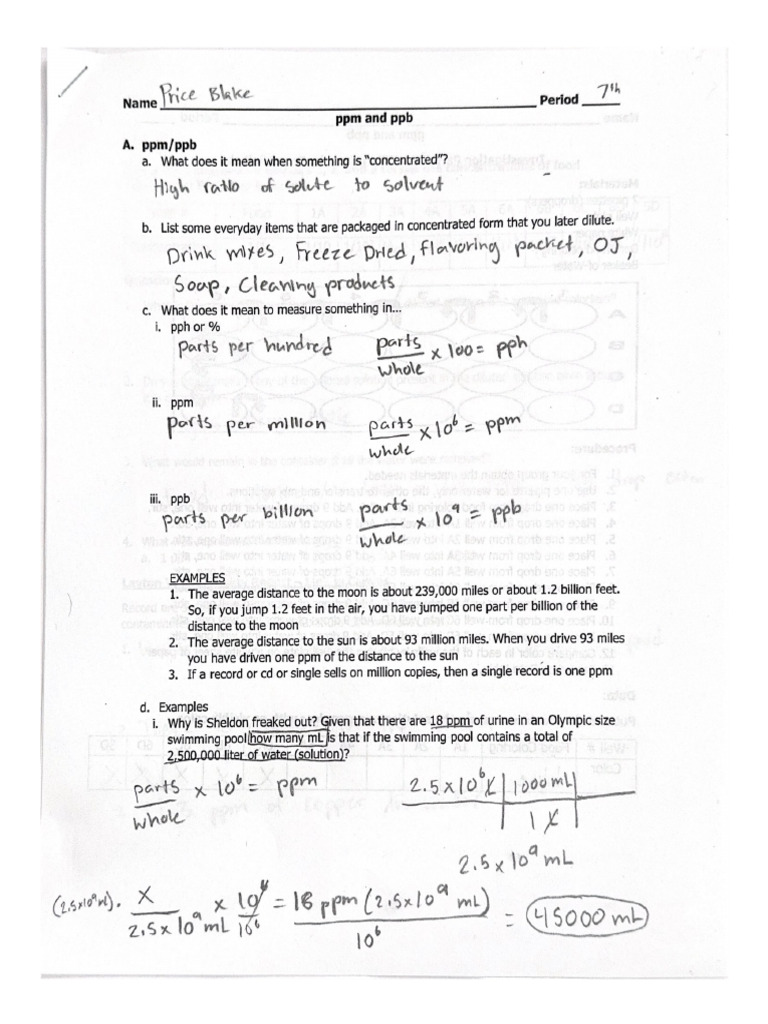 Name Price Blake Period 7th
ppm and ppb
A. ppm/ppb
a. What does it mean when something is "concentrated"?
High ratio of solute to solvent
b. List some everyday items that are packaged in concentrated form that you later dilute.
Drink mixes, Freeze Dried, flavoring packet, OJ,
Soap, Cleaning products
c. What does it mean to measure something in...
i. pph or %
parts per hundred parts/whole x 100 = pph
ii. ppm
parts per million parts/whole x 10^6 = ppm
iii. ppb
parts per billion parts/whole x 10^9 = ppb
EXAMPLES
1. The average distance to the moon is about 239,000 miles or about 1.2 billion feet.
So, if you jump 1.2 feet in the air, you have jumped one part per billion of the
distance to the moon
2. The average distance to the sun is about 93 million miles. When you drive 93 miles
you have driven one ppm of the distance to the sun
3. If a record or cd or single sells on million copies, then a single record is one ppm
d. Examples
i. Why is Sheldon freaked out? Given that there are 18 ppm of urine in an Olympic size
swimming pool how many mL is that if the swimming pool contains a total of
2,500,000 liter of water (solution)?
parts/whole x 10^6 = ppm 2.5 x 10^6 L | 1000 mL
1 L
2.5 x 10^9 mL
(2.5x10^9 mL) . X/2.5 x 10^9 mL x 10^6/10^6 = 18 ppm (2.5x10^9 mL)/10^6 = 45000 mL